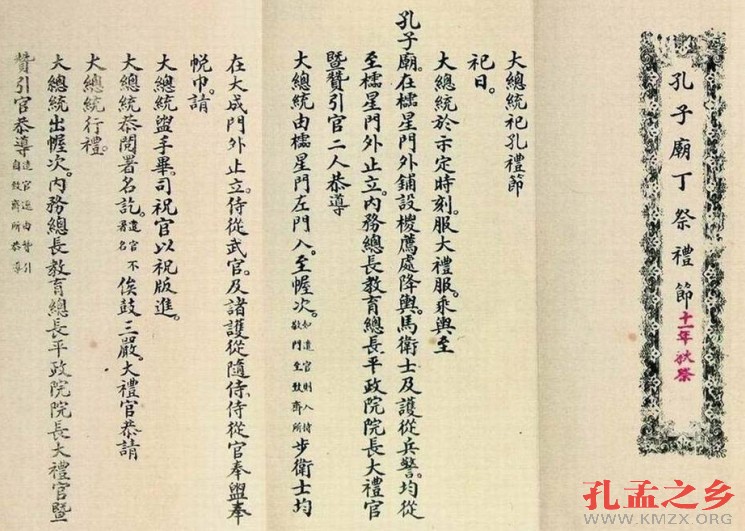 孔子廟丁祭禮節
十一年秋祭
大總統祀孔禮節
祀日。
大總統於示定時刻。服大禮服。乘輿至
孔子廟。在櫺星門外鋪設椶薦處降輿。馬衛士及護從兵警。均從
至櫺星門外止立。內務總長教育總長平政院院長大禮官
暨贊引官二人恭導
大總統由櫺星門左門入。至幄次。如遣官則入持敬門至致齋所步衛士均
在大成門外止立。侍從武官。及諸護從隨侍。侍從官奉盥奉
帨巾。請
大總統盥手畢。司祝官以祝版進。
大總統恭閱署名訖。遣官不署名俟鼓三嚴。大禮官恭請
大總統行禮。
大總統出幄次。內務總長教育總長平政院院長大禮官暨
贊引官恭導遣官進由贊引自致齋所恭導
孔孟之乡
WWW.KMZX.ORG